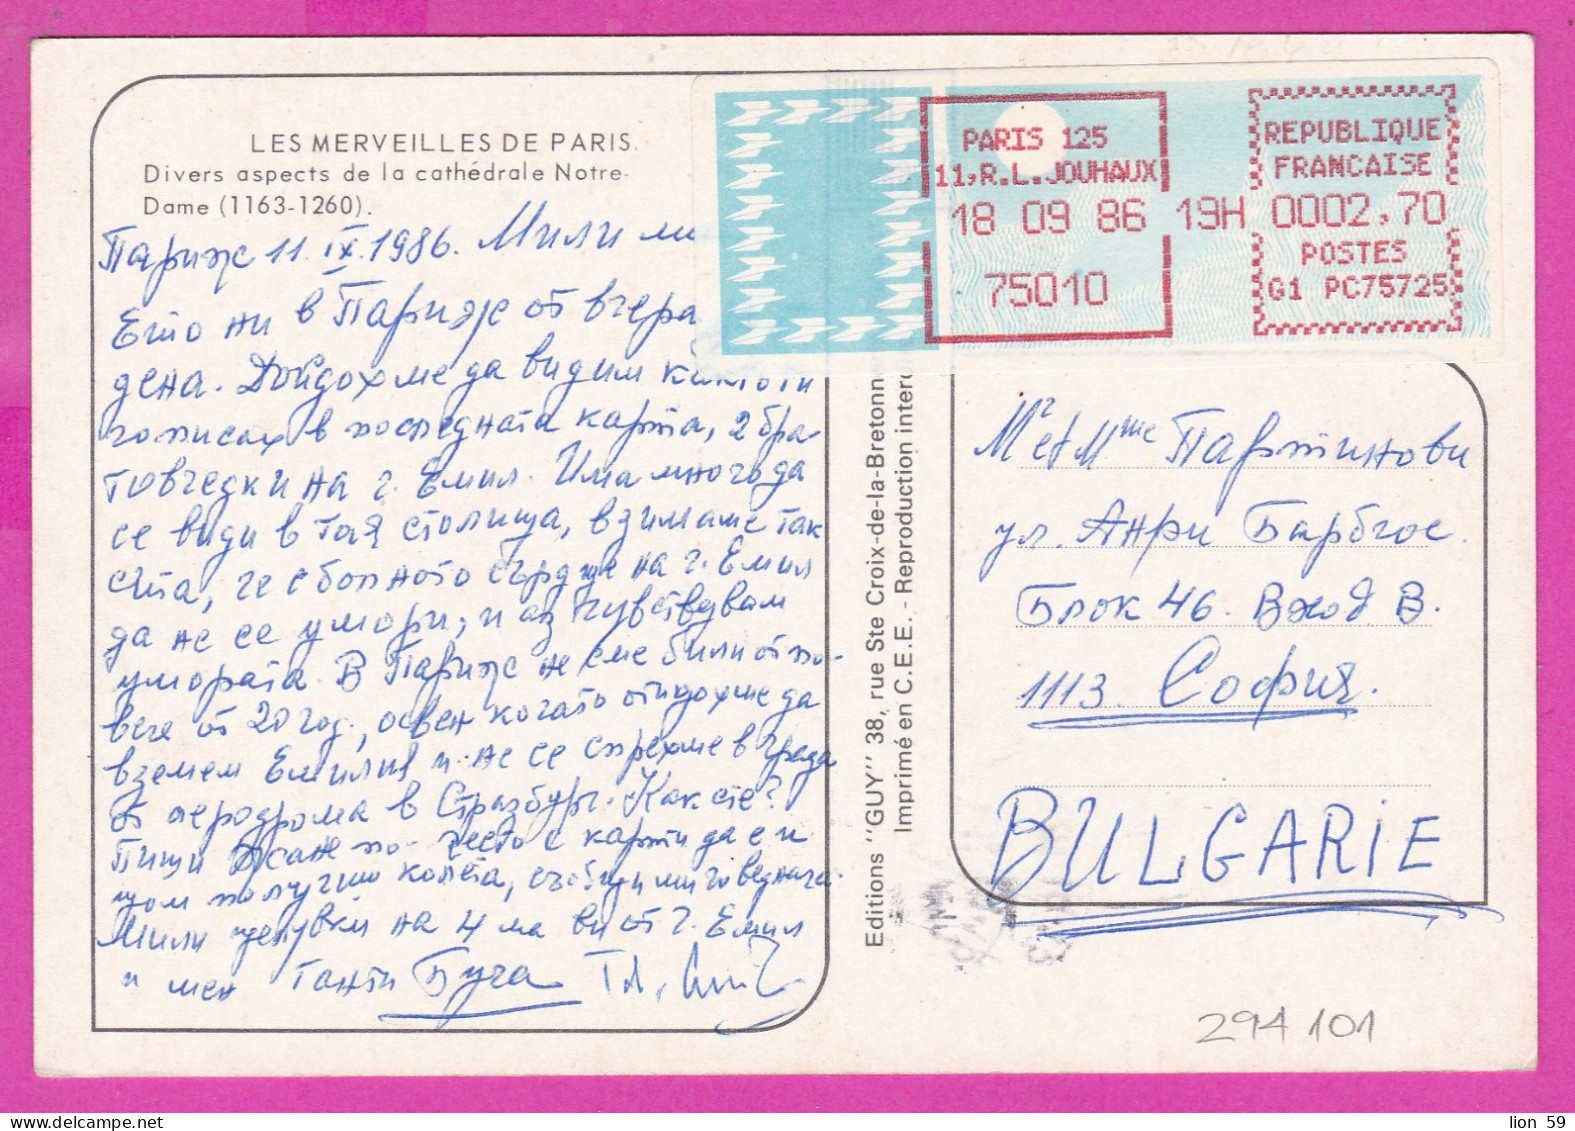 LES MERVEILLES DE PARIS.
Divers aspects de la cathédrale Notre-
Dame (1163-1260).
Париж 11.IX.1986. Мили ми
Ето ни в Париж от вчера
дена. Дойдохме да видим както ти
писах в последната карта, 2 бра-
товчедки на г. Емил. Има много да
се види в тая столица, взимаме так
сита, че с болното сърдце на г. Емил
да не се умори, и аз чувствувам
умората. В Париж не сме били от по-
вече от 20 год., освен когато отидохме да
вземем Емилия и не се спрехме в града
от аеродрома в Стразбург. Как сте?
Пиши Жане по-често с карти да е и
щом получиш колета, съобщи ми го веднага.
Мили целувки на 4 ма ви от г. Емил
и мен Танти Буча
PARIS 125
11,R.L.JOUHAUX
18 09 86 19H
75010
REPUBLIQUE
FRANCAISE
0002,70
POSTES
G1 PC75725
Editions "GUY" 38, rue Ste Croix-de-la-Bretonne
Imprimé en C.E.E. - Reproduction interd
Mr et Mme Партинови
ул. Анри Барбюс.
Блок 46. Вход В.
1113. София.
BULGARIE
294101
lion 59